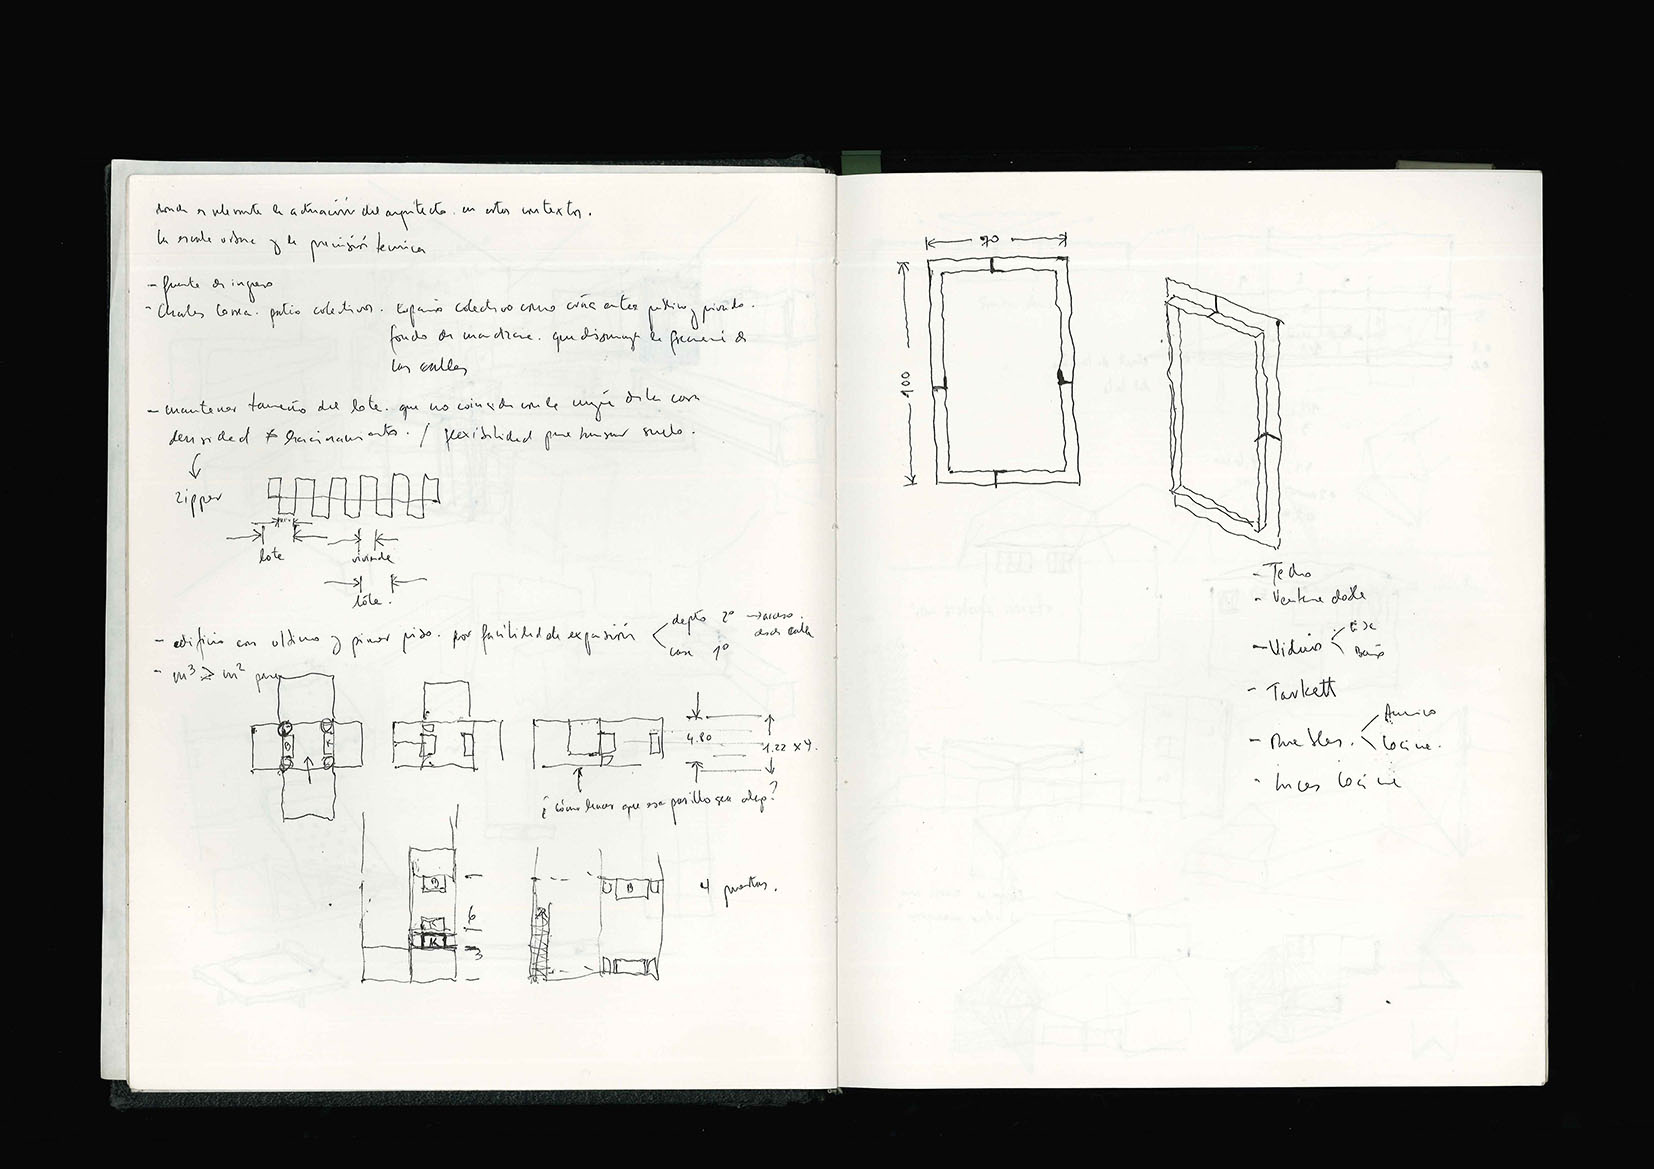 donde es relevante la actuación del arquitecto. en estos contextos.
la escala urbana y la precisión técnica
- fuente de ingreso
- Charles Correa. patio colectivos. Espacio colectivo como entre público y privado.
fondo de que la de
las calles
- mantener tamaño del lote. que no coincida con la de la casa
densidad ≠ hacinamiento. / flexibilidad para suelo.
zipper
lote
vivienda
lote.
- edificio con ultimo y primer piso. por facilidad de expansión
depto 2º → acceso.
desde calle
casa 1º
- m³ ≥ m² para
B
K
4.80
1.22 x 4.
¿cómo hacer que ese pasillo sea algo?
B
K
K
6
3
B
4 puertas.
70
100
- Techo
- Ventana doble
- Vidrios
Baño
- Tarkett
- Muebles.
Cocina.
- Luces Cocina